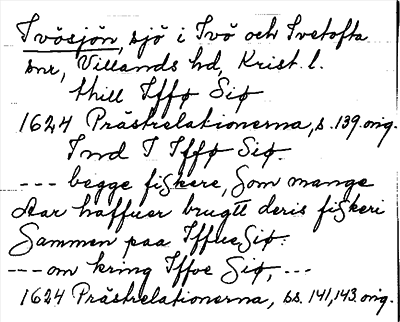 Ivösjön, sjö i Ivö och Ivetofta
snr, Villands hd, Krist. l.
thill Iffø Siø
1624 Prästrelationerna, s. 139. orig.
Ind I Iffø Siø.
--- begge fiskere, Som mange
Aar haffuer brugtt deris fiskeri
Sammen paa IffueSiø:
--- om kring Iffoe Siø, ---
1624 Prästrelationerna, ss. 141, 143. orig.